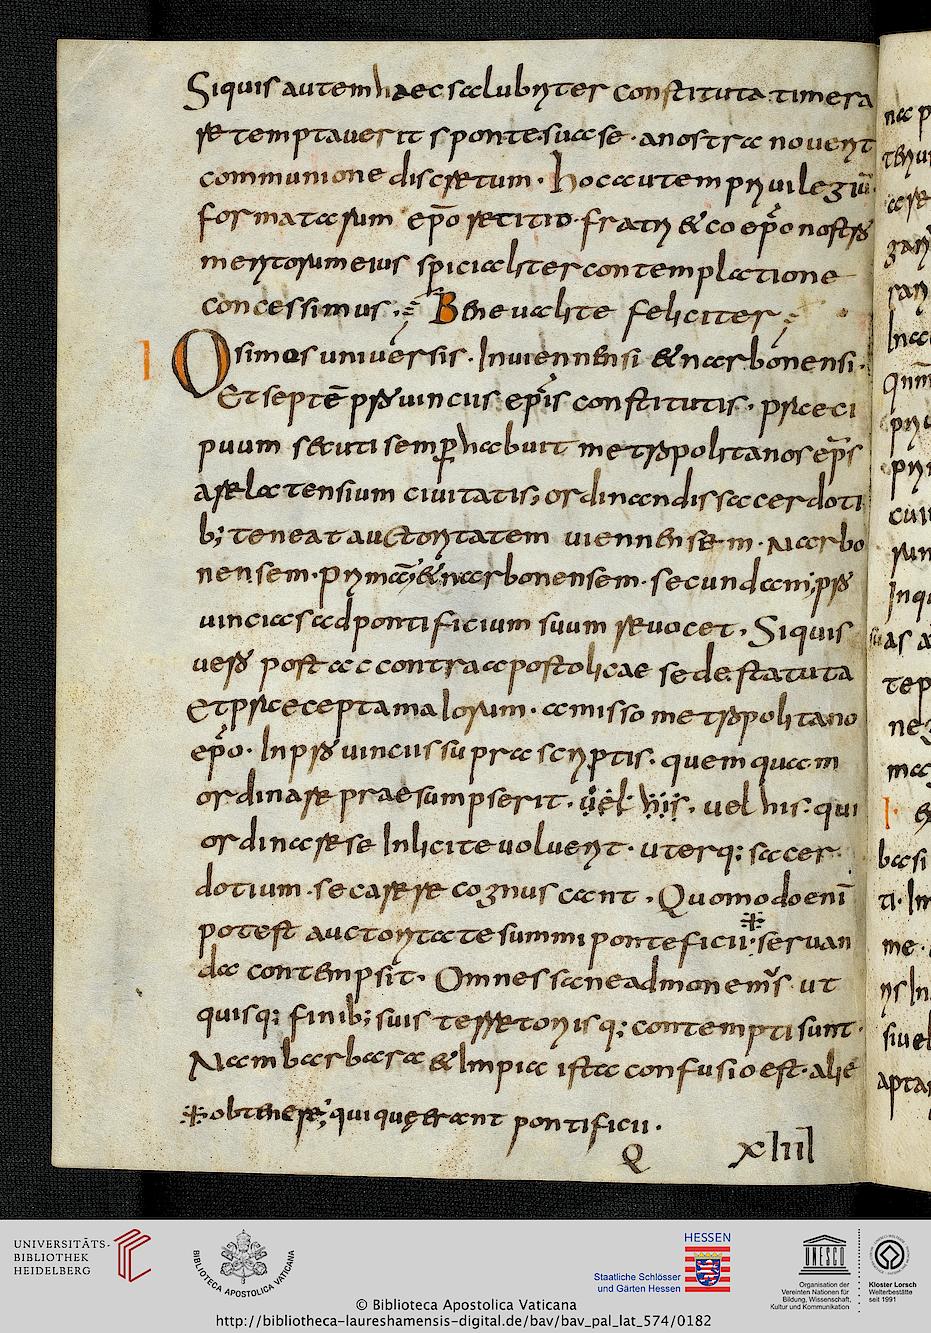 Siquis autem haec salubriter constituta timera
re temptaverit sponte suase · a nostra noverit
communione discretum · hoc autem privilegiū ·
formatarum ep̄o retitio · fratri & coep̄o nostro
meritorum eius specialiter contemplatione
concessimus · Bene valite feliciter
I Osimos universis · In viennensi & narbonensi ·
Et septē provinciis ep̄is constitutis · praeci
puum secuti semp̄ habuit metropolitanos ep̄s
arelatensium civitatis; ordinandis sacerdoti
b; teneat auctoritatem viennensem · Narbo
nensem · primā; & narbonensem · secundam; pro
vincias ad pontificium suum revocet · Siquis
vero post ac contra apostolicae sedes statuta
et praecepta malorum · amisso metropolitano
ep̄o · In provinciis supra scriptis · quemquam
ordinare praesumpserit · vel his · vel his · qui
ordinarese Inlicite volverit · uterq; sacer
dotium · se carere cognuscant · Quomodo enī
potest auctoritate summi ponteficii · servan
da contempsit · Omnes sane admonem's ut
quisq; finib; suis terretoriisq; contempti sunt ·
Nam barbara & Impia ista confusio est · alie
obtenere; qui quęerant pontificii ·
Q XIIII
UNIVERSITÄTS-
BIBLIOTHEK
HEIDELBERG
BIBLIOTECA APOSTOLICA VATICANA
HESSEN
Staatliche Schlösser
und Gärten Hessen
UNESCO
Organisation der
Vereinten Nationen für
Bildung, Wissenschaft,
Kultur und Kommunikation
Kloster Lorsch
Welterbestätte
seit 1991
© Biblioteca Apostolica Vaticana
http://bibliotheca-laureshamensis-digital.de/bav/bav_pal_lat_574/0182